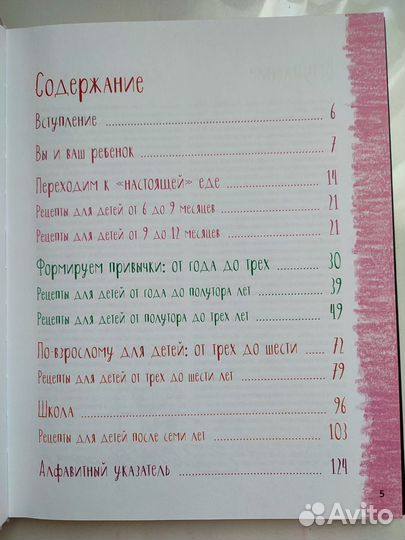 Содержание
Вступление 6
Вы и ваш ребенок 7
Переходим к «настоящей» еде 14
Рецепты для детей от 6 до 9 месяцев 21
Рецепты для детей от 9 до 12 месяцев 21
Формируем привычки: от года до трех 30
Рецепты для детей от года до полутора лет 39
Рецепты для детей от полутора до трех лет 49
По-взрослому для детей: от трех до шести 72
Рецепты для детей от трех до шести лет 79
Школа 96
Рецепты для детей после семи лет 103
Алфавитный указатель 124
5
Avito